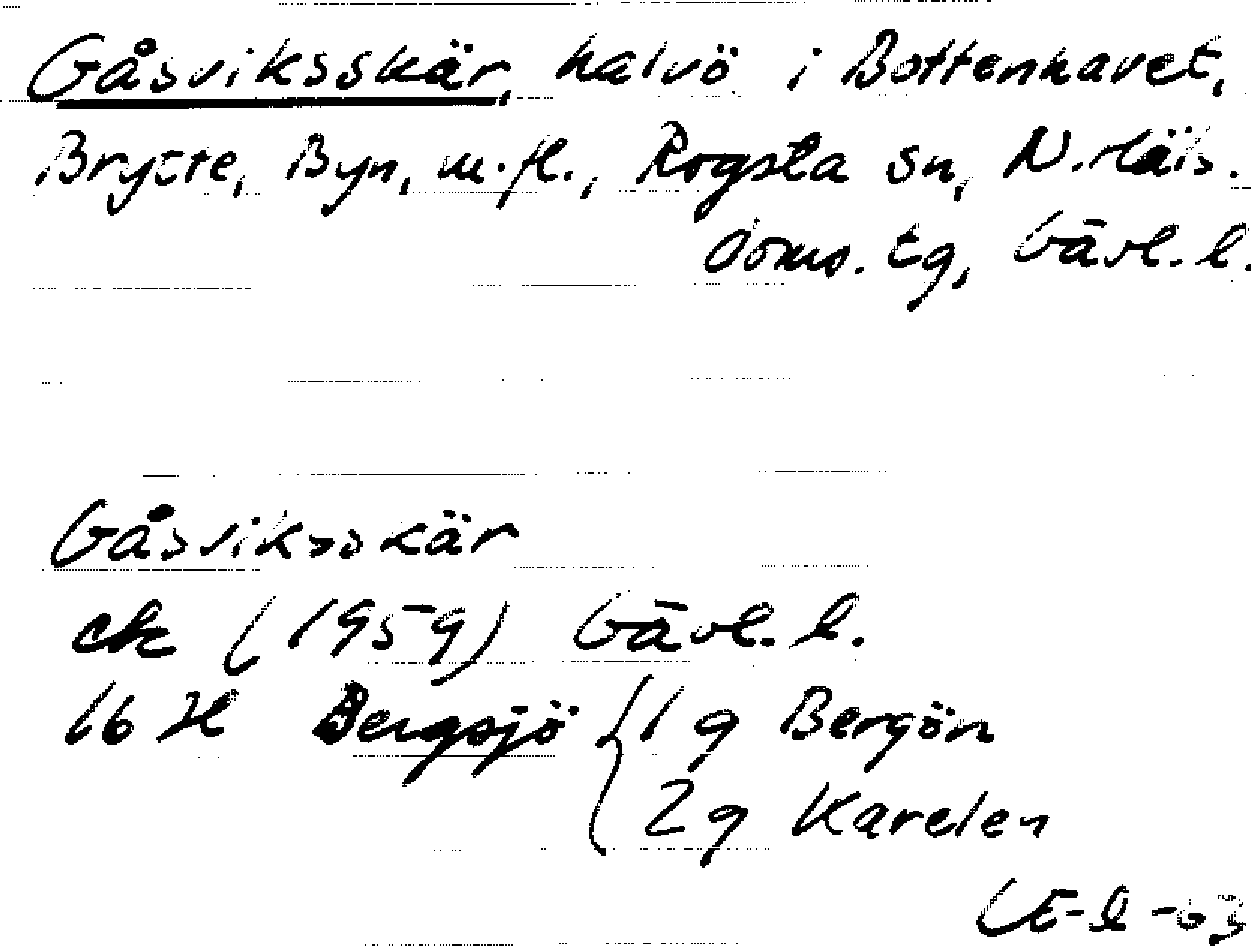 Gåsviksskär, halvö i Bottenhavet,
Brytte, Byn, m.fl., Rogsta sn, N. Häls.
doms. tg, Gävl. l.
Gåsviksskär
ek (1959) Gävl. l.
16 H Bergsjö { 1 g Bergön
2 g Karelen
-63